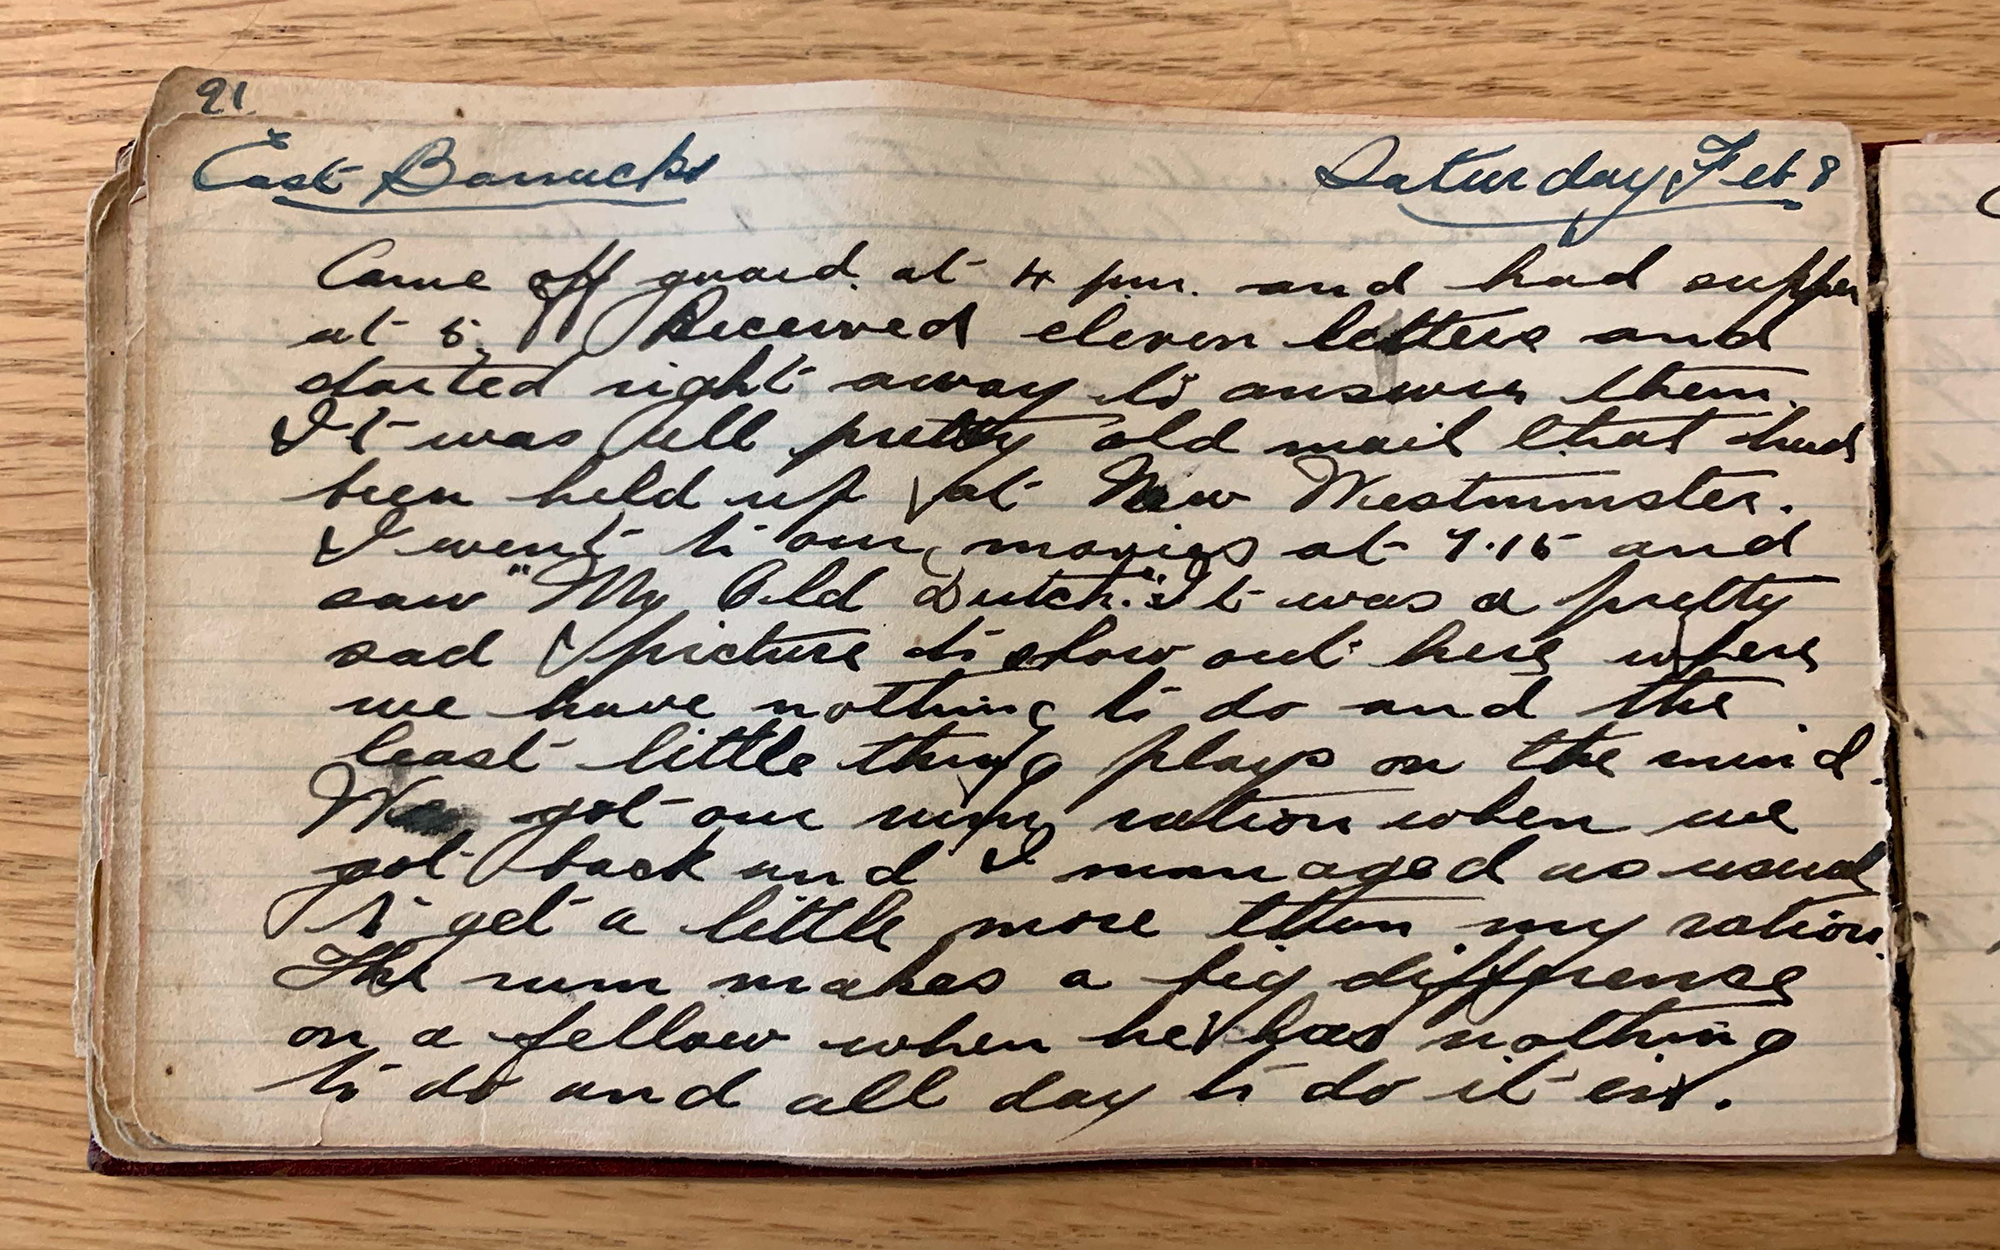 91
East Barracks Saturday, Feb 8
Came off guard at 4 p.m. and had supper
at 5. Received eleven letters and
started right away to answer them.
It was all pretty old mail that had
been held up at New Westminster.
I went to our movies at 7.15 and
saw "My Old Dutch." It was a pretty
sad picture to show out here where
we have nothing to do and the
least little thing plays on the mind.
We got our rum ration when we
got back and I managed as usual
to get a little more than my ration.
The rum makes a big difference
on a fellow when he has nothing
to do and all day to do it in.